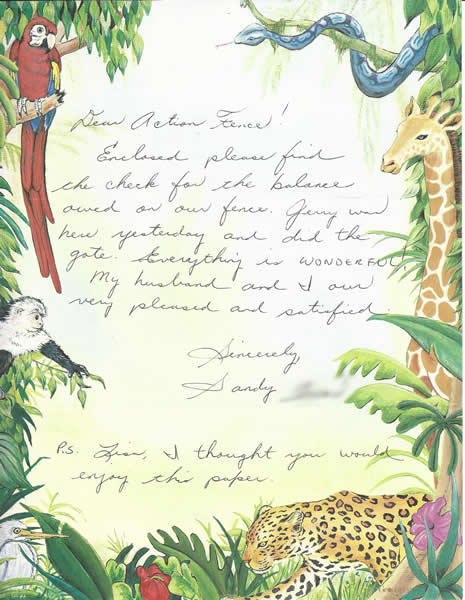 Dear Action Fence!
Enclosed please find
the check for the balance
owed on our fence. Jerry was
here yesterday and did the
gate. Everything is WONDERFUL.
My husband and I our
very pleased and satisfied.
Sincerely,
Sandy
P.S. Lisa, I thought you would
enjoy this paper.